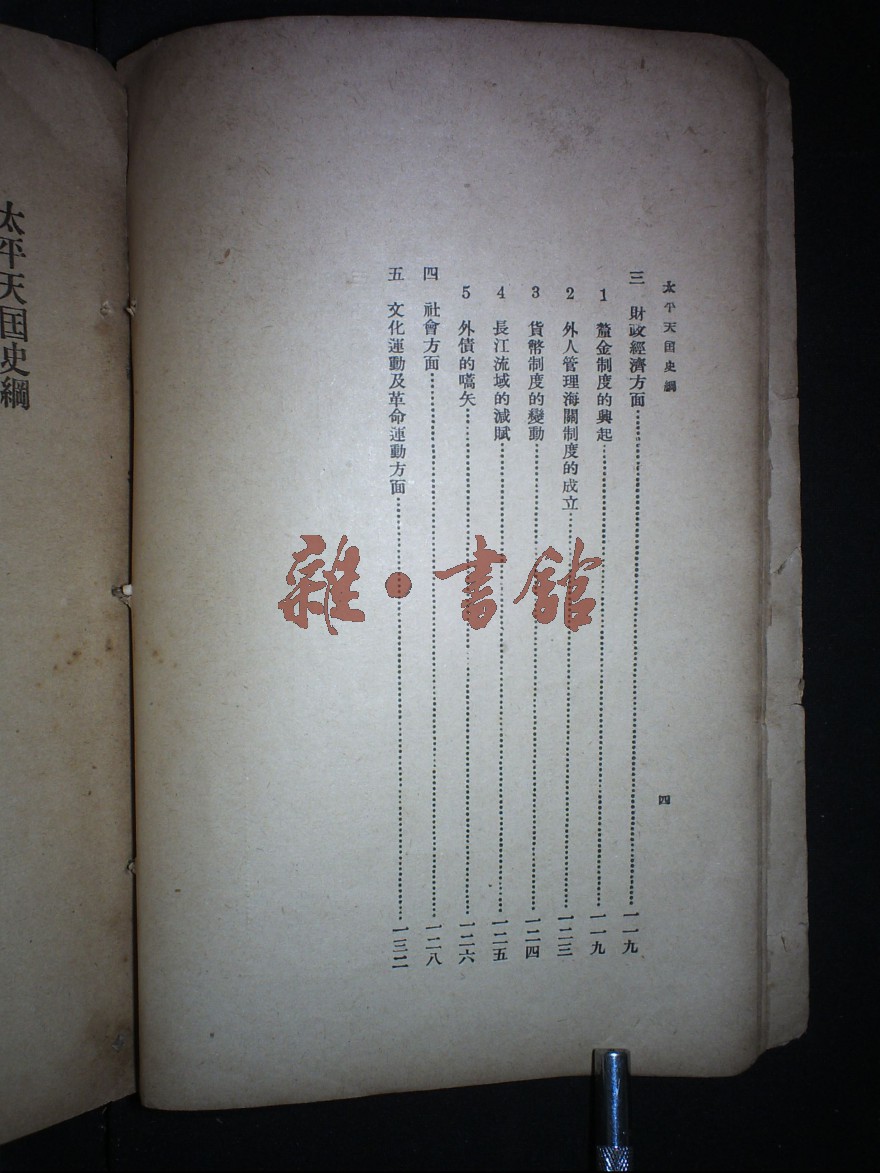 太平天囯史綱
三 財政經濟方面……一一九
1 釐金制度的興起……一一九
2 外人管理海關制度的成立……一二三
3 貨幣制度的變動……一二四
4 長江流域的減賦……一二五
5 外債的嚆矢……一二六
四 社會方面……一二八
五 文化運動及革命運動方面……一三二
四
太平天囯史綱
雜·書館